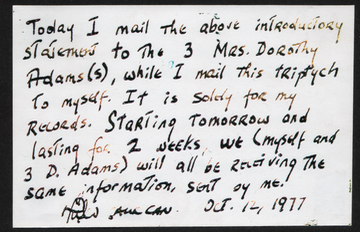 Today I mail the above introductory
statement to the 3 Mrs. Dorothy
Adams(s), while I mail this triptych
to myself. It is solely for my
records. Starting tomorrow and
lasting for 2 weeks, we (myself and
3 D. Adams) will all be receiving the
same information, sent by me.
Oct. 12, 1977